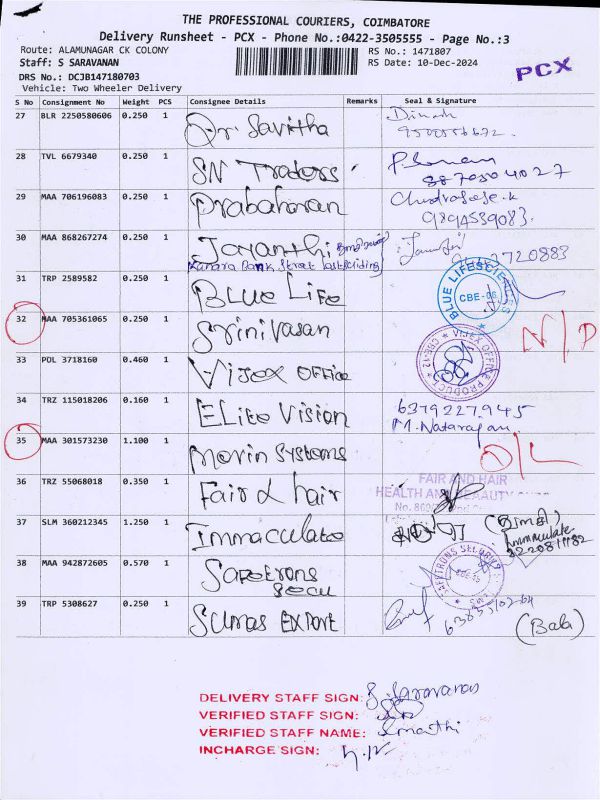 THE PROFESSIONAL COURIERS, COIMBATORE
Delivery Runsheet - PCX - Phone No.:0422-3505555 - Page No.:3
Route: ALAMUNAGAR CK COLONY
RS No.: 1471807
Staff: S SARAVANAN
RS Date: 10-Dec-2024
PCX
DRS No.: DCJB147180703
Vehicle: Two Wheeler Delivery
S No Consignment No Weight PCS Consignee Details Remarks Seal & Signature
27 BLR 2250580606 0.250 1 Dr. Savitha Dinesh
28 TVL 6679340 0.250 1 SN Traders
8870504027
29 MAA 706196083 0.250 1 Prabaharan
9894539083.
30 MAA 868267274 0.250 1 Jayanthi
Kanara Bank Street last building
31 TRP 2589582 0.250 1 BLUE LIFE BLUE LIFESCIENCES CBE-06
32 MAA 705361065 0.250 1 Srinivasan N/D
33 POL 3718160 0.460 1 Vijex OFFice VIJEX OFFICE PRODUCT
34 TRZ 115018206 0.160 1 ELite Vision 6379227945
M. Natarajan.
35 MAA 301573230 1.100 1 Movin Systems O/L
36 TRZ 55068018 0.350 1 Fair & hair FAIR AND HAIR
HEALTH AND BEAUTY
37 SLM 360212345 1.250 1 Immaculate
Immaculate
38 MAA 942872605 0.570 1
39 TRP 5308627 0.250 1 Sumas EXPORT
(Bala)
DELIVERY STAFF SIGN: S. Saravanan
VERIFIED STAFF SIGN:
VERIFIED STAFF NAME:
INCHARGE SIGN: